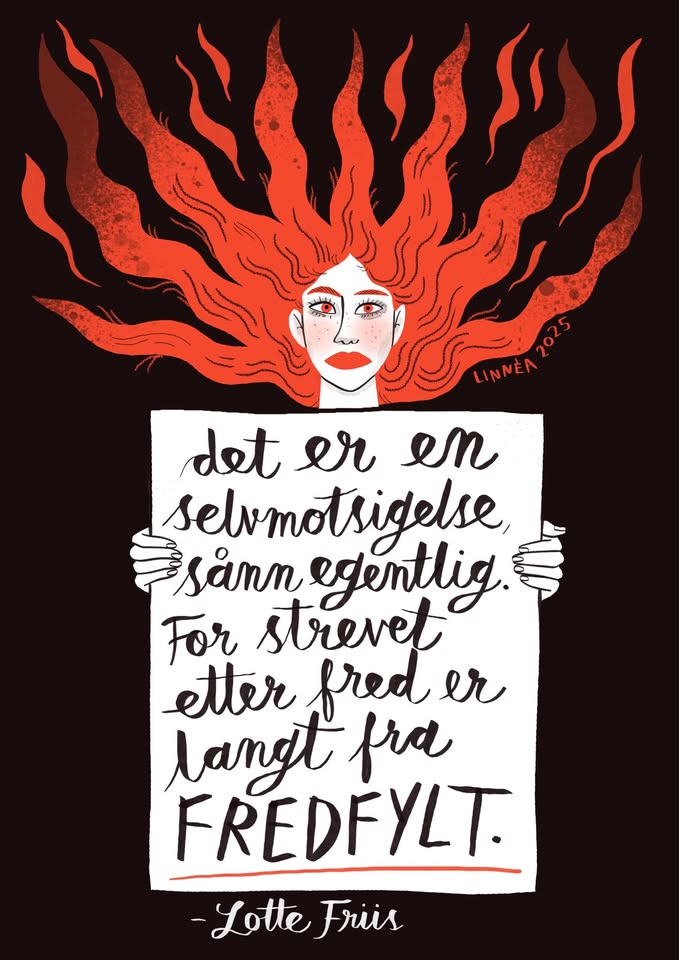 LINNÈA 2025
det er en
selvmotsigelse,
sånn egentlig.
For strevet
etter fred er
langt fra
FREDFYLT.
- Lotte Friis